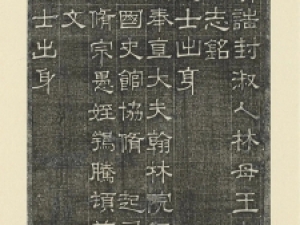 誥封淑人林母王
志銘
士出身
奉直大夫翰林院
國史館協脩起
脩宗愚姪鴻騰頓首
文
士出身